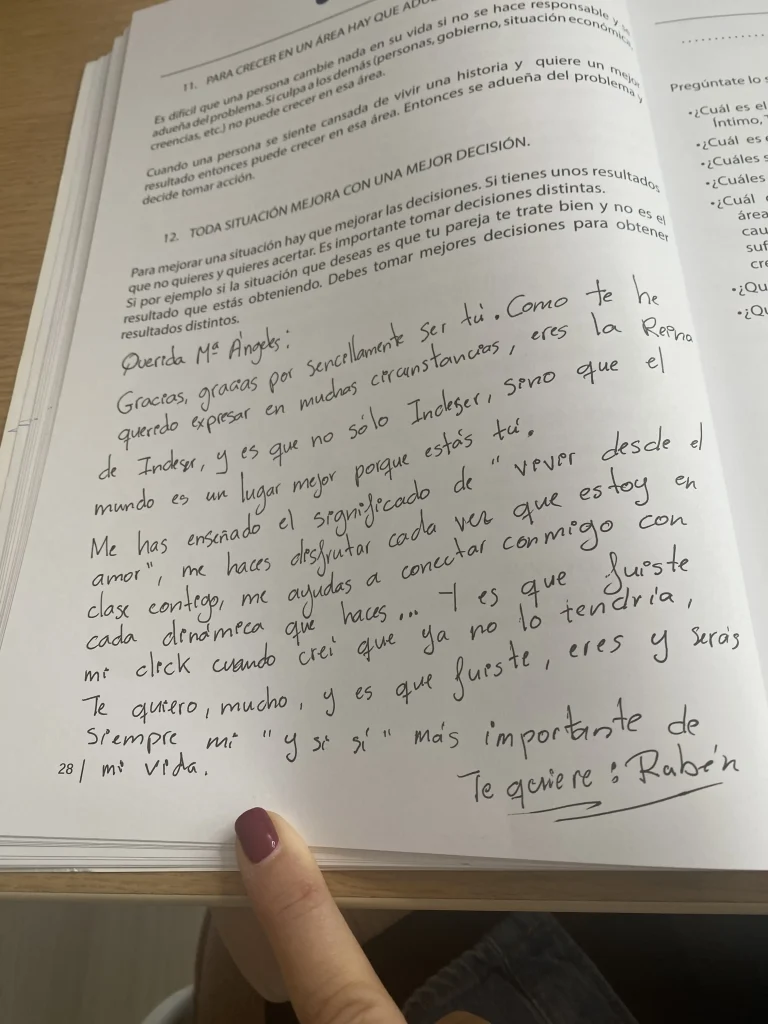 11. PARA CRECER EN UN ÁREA HAY QUE
Es difícil que una persona cambie nada en su vida si no se hace responsable y se
adueña del problema. Si culpa a los demás (personas, gobierno, situación económica,
creencias, etc.) no puede crecer en esa área.
Cuando una persona se siente cansada de vivir una historia y quiere un mejor
resultado entonces puede crecer en esa área. Entonces se adueña del problema y
decide tomar acción.
12. TODA SITUACIÓN MEJORA CON UNA MEJOR DECISIÓN.
Para mejorar una situación hay que mejorar las decisiones. Si tienes unos resultados
que no quieres y quieres acertar. Es importante tomar decisiones distintas.
Si por ejemplo si la situación que deseas es que tu pareja te trate bien y no es el
resultado que estás obteniendo. Debes tomar mejores decisiones para obtener
resultados distintos.
Querida Mª Ángeles:
Gracias, gracias por sencillamente ser tú. Como te he
querido expresar en muchas circunstancias, eres la Reina
de Indeser, y es que no sólo Indeser, sino que el
mundo es un lugar mejor porque estás tú.
Me has enseñado el significado de "vivir desde el
amor", me haces disfrutar cada vez que estoy en
clase contigo, me ayudas a conectar conmigo con
cada dinámica que haces... Y es que fuiste
mi click cuando creí que ya no lo tendría,
Te quiero, mucho, y es que fuiste, eres y serás
siempre mi "y si sí" más importante de
28/ mi vida.
Te quiere: Rubén
Pregúntate lo
•¿Cuál es el
Íntimo,
•¿Cuál es
•¿Cuáles
•¿Cuáles
•¿Cuál
área
cau
suf
cre
•¿Qu
•¿Qu